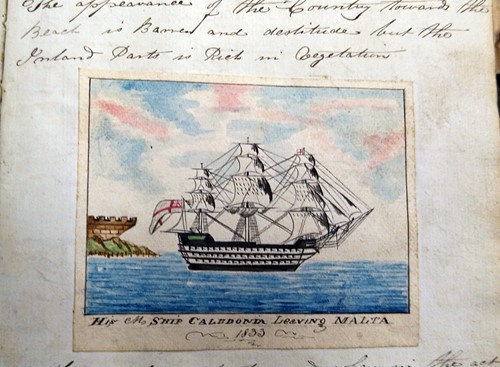 The appearance of the Country towards the
Beach is Barren and destitude but the
Inland Parts is Rich in Vegetation
His M. Ship Caledonia Leaving Malta
1833
the act